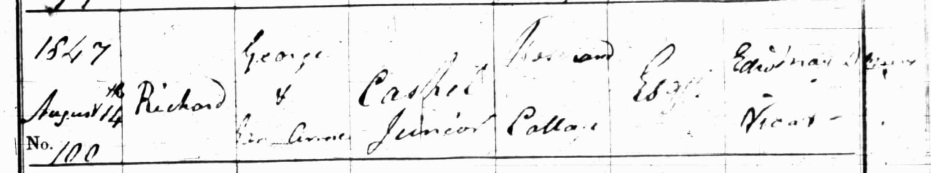 1847
August 14th
No. 100
Richard
George
&
Anne
Cashel
Junior
Cottage
Esqr.
Vicar